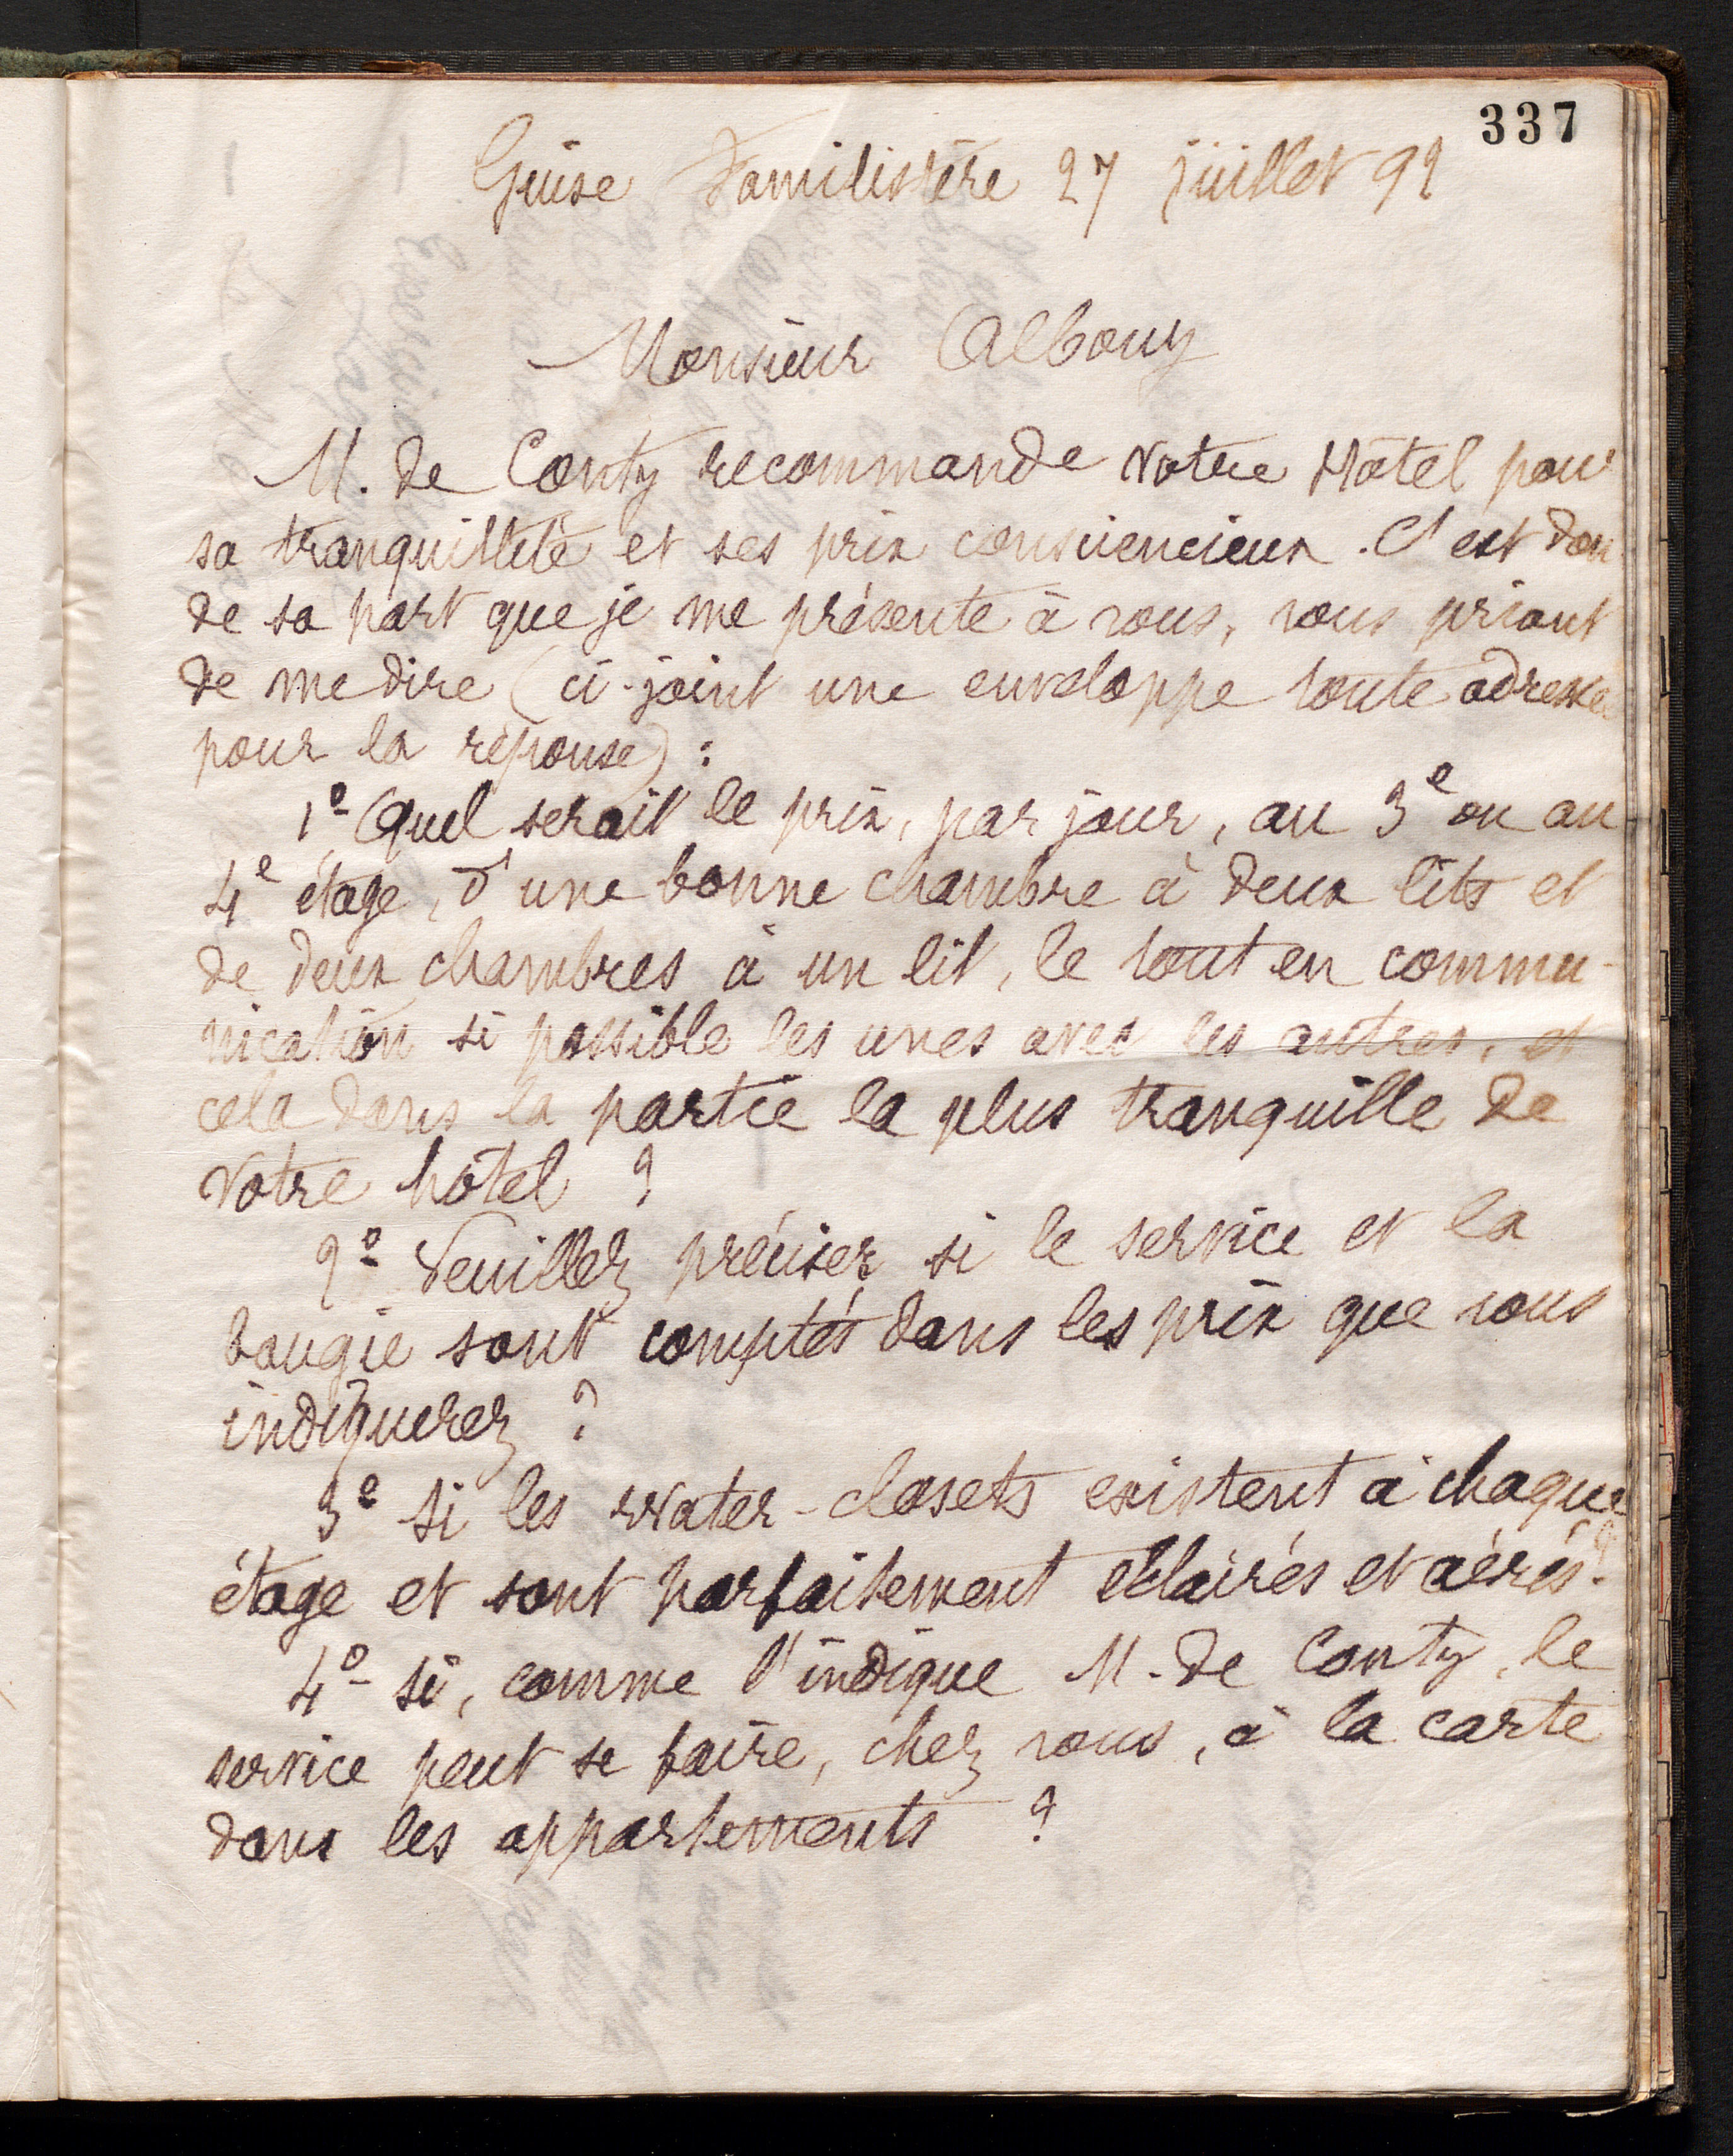 337
Guise Familistère 27 juillet 92
Monsieur Albouy
M. de Conty recommande votre Hôtel pour
sa tranquillité et ses prix consciencieux. C'est donc
de sa part que je me présente à vous, vous priant
de me dire (ci-joint une enveloppe toute adressée
pour la réponse) :
1º Quel serait le prix, par jour, au 3e ou au
4e étage, d'une bonne chambre à deux lits et
de deux chambres à un lit, le tout en commu-
nication si possible les unes avec les autres, et
cela dans la partie la plus tranquille de
votre hôtel ?
2º Veuillez préciser si le service et la
bougie sont comptés dans les prix que vous
indiquerez ?
3º si les water-closets existent à chaque
étage et sont parfaitement éclairés et aérés ?
4º si, comme l'indique M. de Conty, le
service peut se faire, chez vous, à la carte
dans les appartements ?